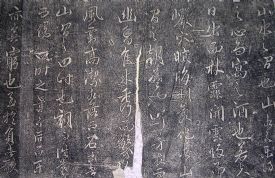 山水之間也山水之樂
得之心而寓之酒也若夫
日出而林霏開雲歸而
巖穴暝晦明變化者山
間之朝暮也野芳發而
幽香佳木秀而繁陰
風霜高潔水落而石出者
山間之四時也朝而往暮
而歸四時之景不同而樂
亦無窮也至於負者歌